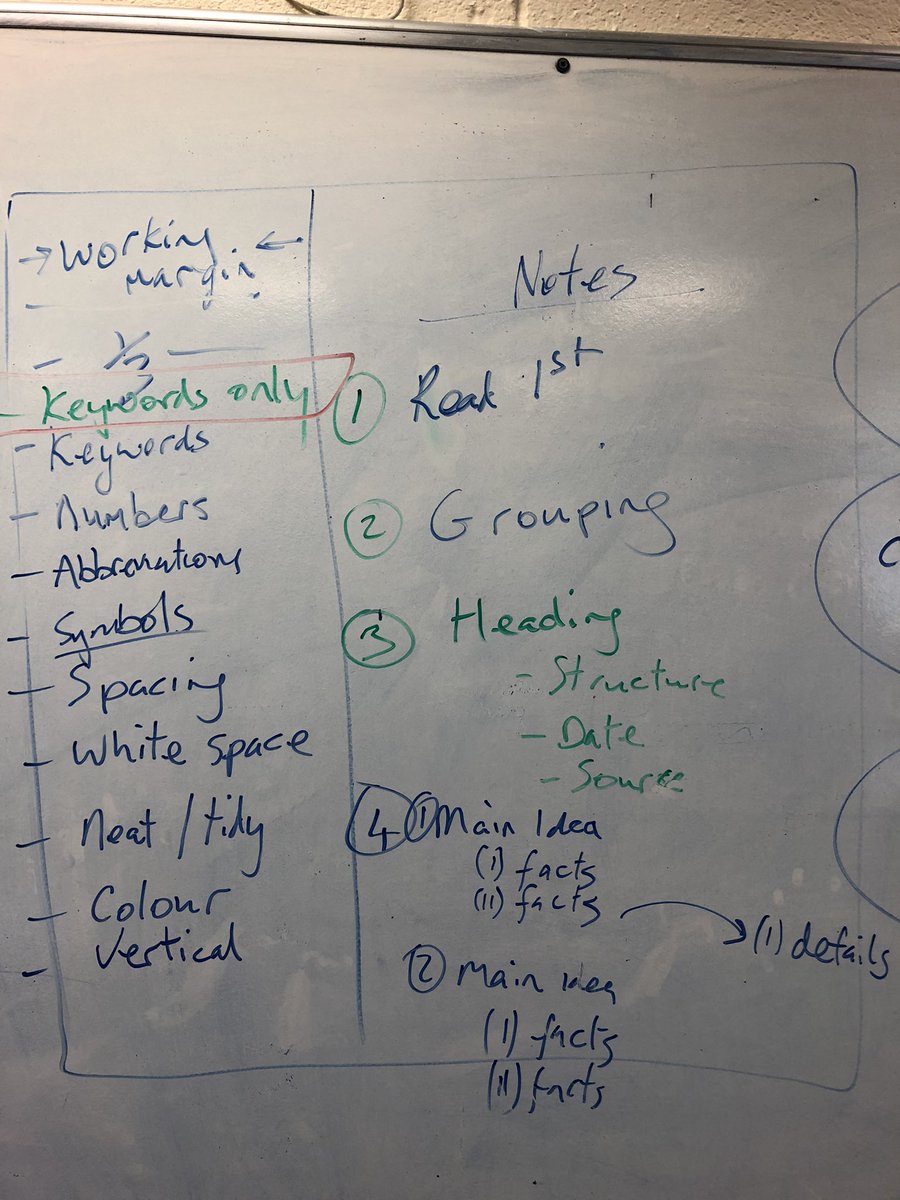 → Working ←
margin
- 1/3 -
- Keywords only
- Keywords
- Numbers
- Abbreviations
- Symbols
- Spacing
- White space
- Neat / tidy
- Colour
- Vertical
Notes
① Read 1st
② Grouping
③ Heading
- Structure
- Date
- Source
④ ① Main Idea
(I) facts
(II) facts → (I) details
② Main Idea
(I) facts
(II) facts